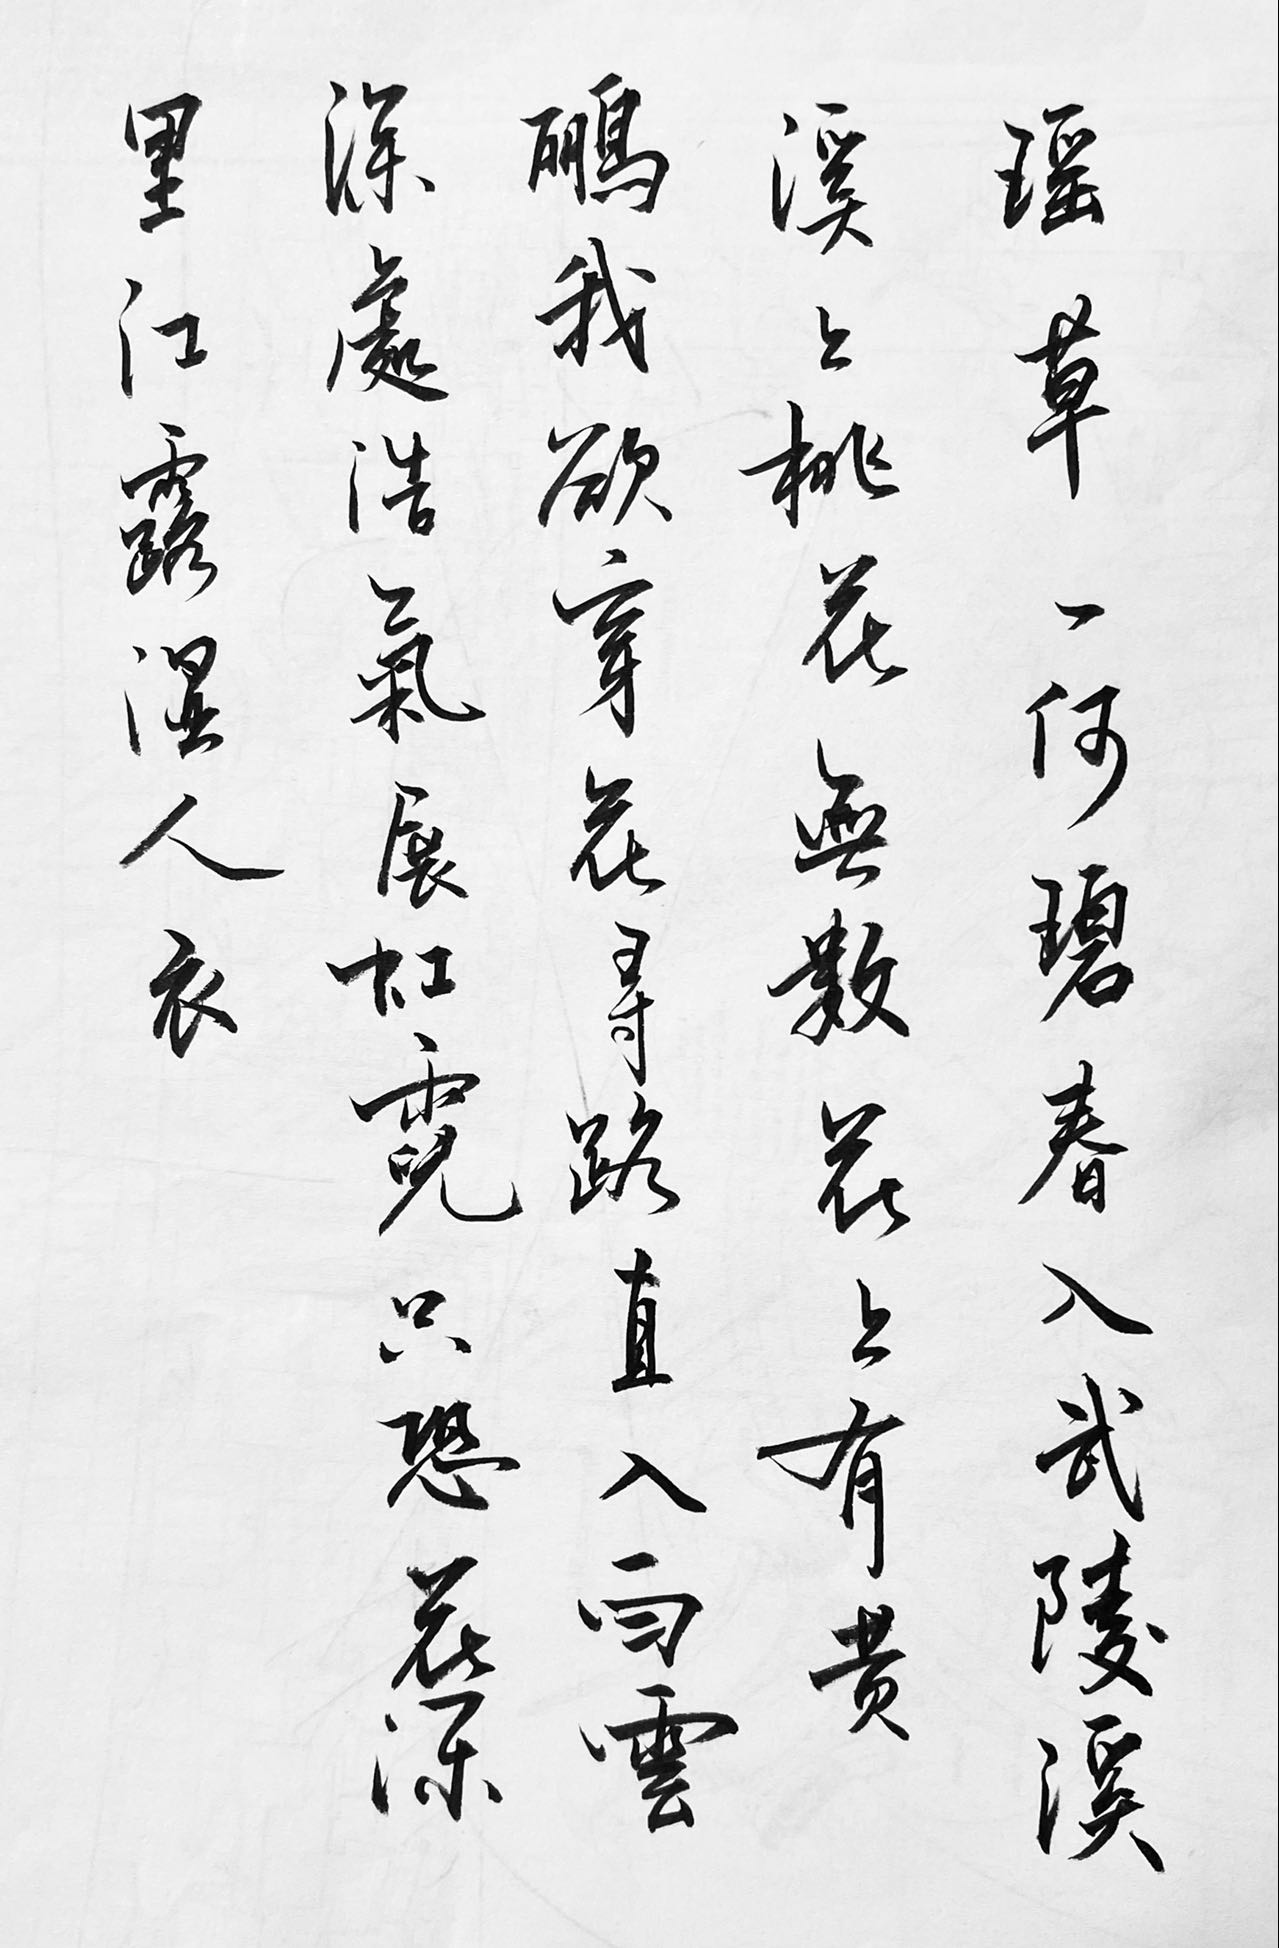 瑶草一何碧春入武陵溪
溪上桃花無數花上有黄
鸝我欲穿花尋路直入白雲
深處浩氣展虹霓只恐花深
里江露濕人衣